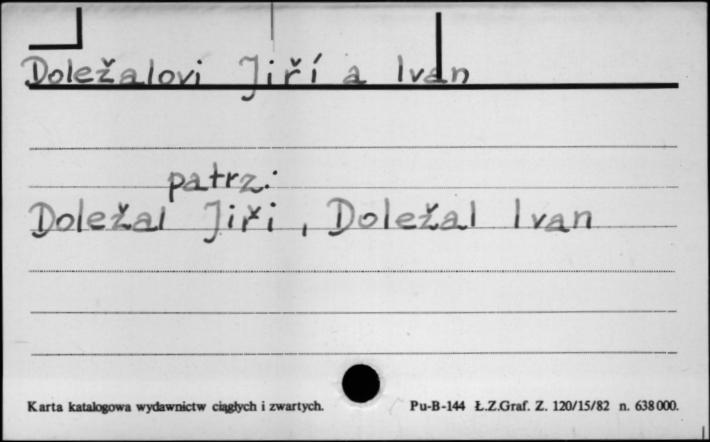 Doležalovi Jiří a Ivan
patrz:
Doležal Jiři, Doležal Ivan
Karta katalogowa wydawnictw ciągłych i zwartych. Pu-B-144 Ł.Z.Graf. Z. 120/15/82 n. 638000.